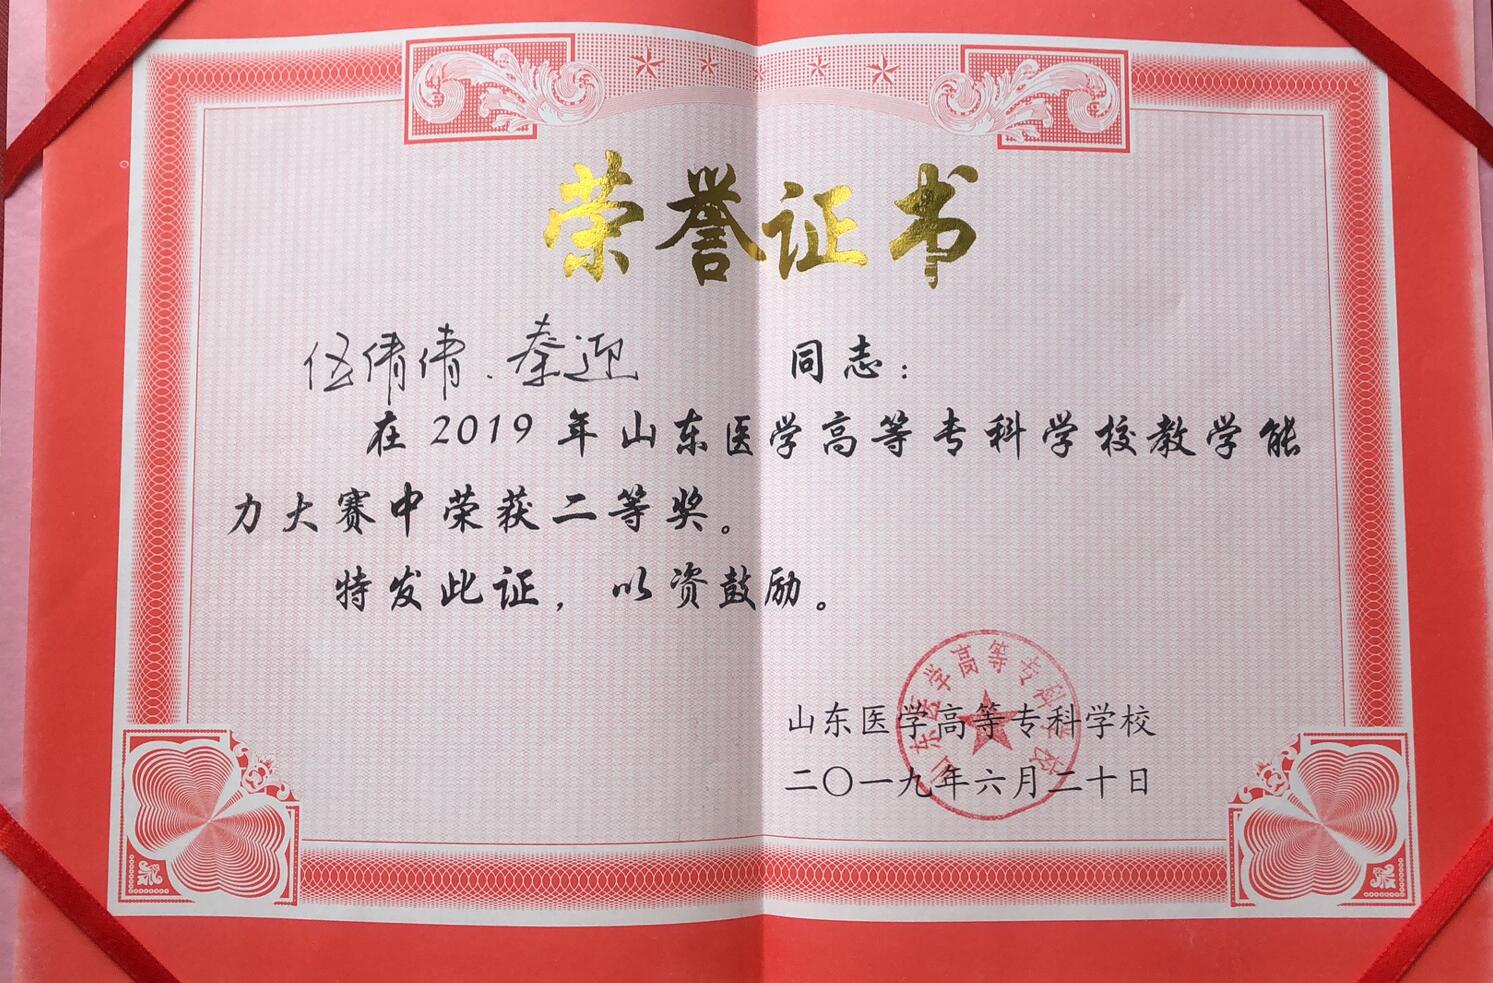 荣誉证书
伍倩倩、秦迎 同志：
在2019年山东医学高等专科学校教学能
力大赛中荣获二等奖。
特发此证，以资鼓励。
山东医学高等专科学校
山东医学高等专科学校
二〇一九年六月二十日